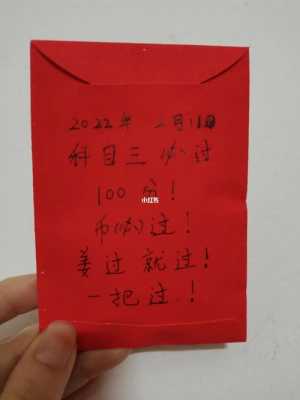 2022年 2月11日
科目三 必过
100分！
小红书
必过！
姜过就过！
一把过！